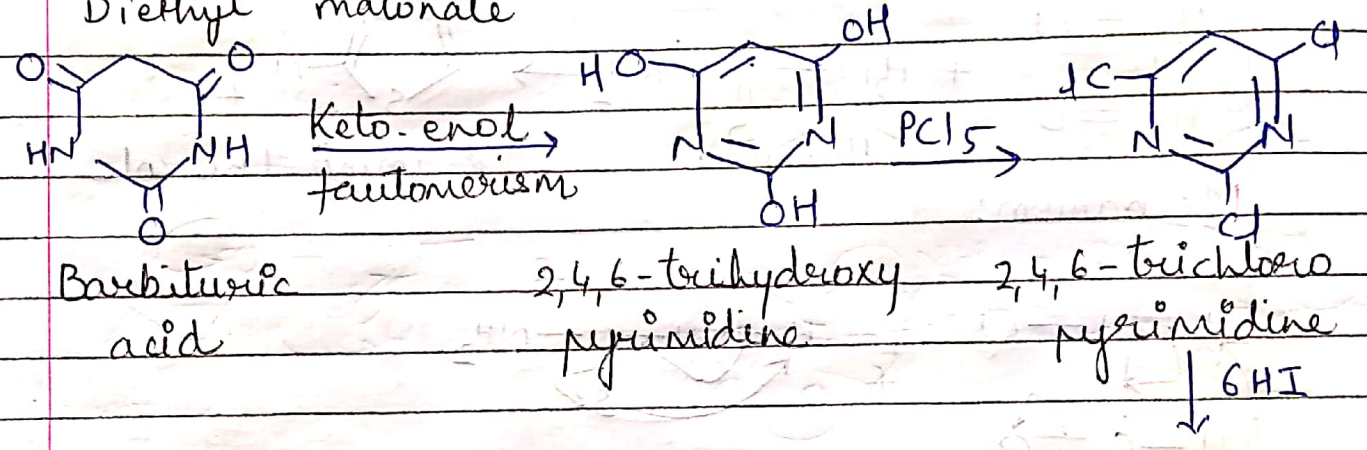 Diethyl malonate
O O HN NH O
Keto-enol
tautomerism
HO OH N N OH
PCl5
Cl Cl N N Cl
Barbituric
acid
2,4,6-trihydroxy
pyrimidine
2,4,6-trichloro
pyrimidine
6HI